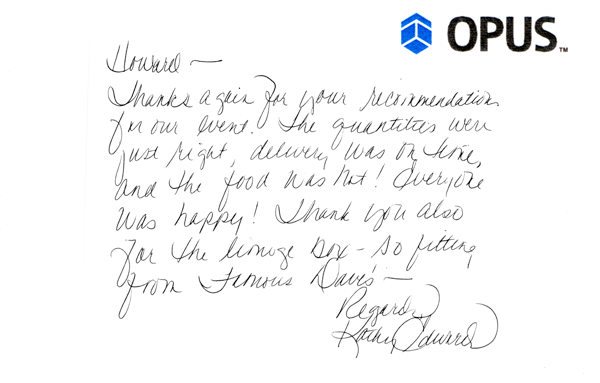 OPUS™
Howard —
Thanks again for your recommendations
for our event. The quantities were
just right, delivery was on time,
and the food was hot! Everyone
was happy! Thank you also
for the limoge box - so fitting
from Famous Dave's —
Regards,
Kathy Edwards